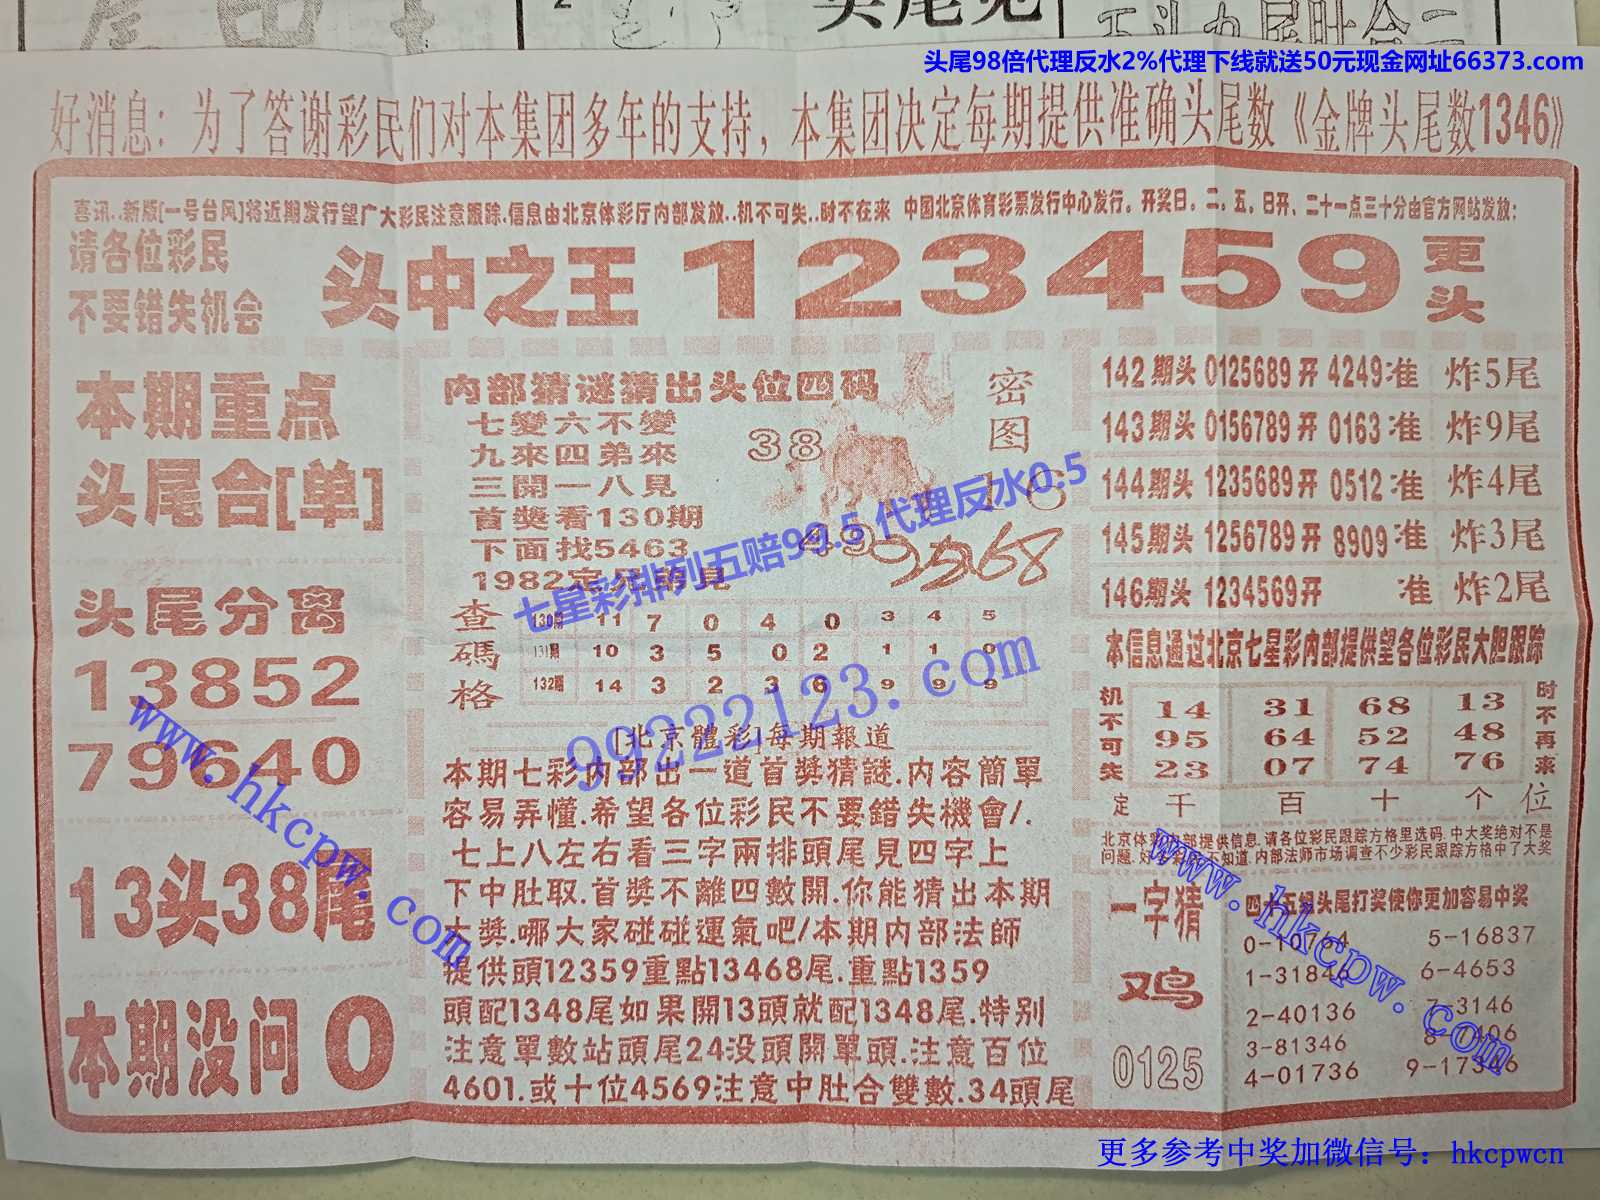 头尾98倍代理反水2%代理下线就送50元现金网址66373.com
好消息：为了答谢彩民们对本集团多年的支持，本集团决定每期提供准确头尾数《金牌头尾数1346》
喜讯..新版[一号台风]将近期发行望广大彩民注意跟踪.信息由北京体彩厅内部发放..机不可失..时不在来 中国北京体育彩票发行中心发行。开奖日。二。五。日开、二十一点三十分由官方网站发放：
请各位彩民
不要错失机会
头中之王 123459 更头
本期重点
头尾合[单]
头尾分离
13852
79640
13头38尾
本期没问0
内部猜谜猜出头位四码
七變六不變
九來四弟來
三開一八見
首獎看130期
下面找5463
1982定
見
38
密图
16
49
68
七星彩排列五赔99.5 代理反水0.5
查碼格
130期 11 7 0 4 0 3 4 5
131期 10 3 5 0 2 1 1 0
132期 14 3 2 3 6 9 9 9
99222123.com
[北京體彩]每期報道
本期七彩内部出一道首獎猜謎.内容簡單
容易弄懂.希望各位彩民不要錯失機會/.
七上八左右看三字兩排頭尾見四字上
下中肚取.首獎不離四數開.你能猜出本期
大獎.哪大家碰碰運氣吧/本期内部法師
提供頭12359重點13468尾.重點1359
頭配1348尾如果開13頭就配1348尾.特别
注意單數站頭尾24没頭開單頭.注意百位
4601.或十位4569注意中肚合雙數.34頭尾
142期头 0125689开 4249准 炸5尾
143期头 0156789开 0163准 炸9尾
144期头 1235689开 0512准 炸4尾
145期头 1256789开 8909准 炸3尾
146期头 1234569开 准 炸2尾
本信息通过北京七星彩内部提供望各位彩民大胆跟踪
机不可失
14 31 68 13
95 64 52 48
23 07 74 76
时不再来
定 千 百 十 个 位
北京体彩内部提供信息.请各位彩民跟踪方格里选码.中大奖绝对不是
问题.好
不知道.内部法师市场调查不少彩民跟踪方格中了大奖
一字猜
鸡
0125
四十五组头尾打奖使你更加容易中奖
0-10764 5-16837
1-31846 6-4653
2-40136 7-3146
3-81346
4-01736
www.hkcpw.com
www.hkcpw.com
更多参考中奖加微信号：hkcpwcn